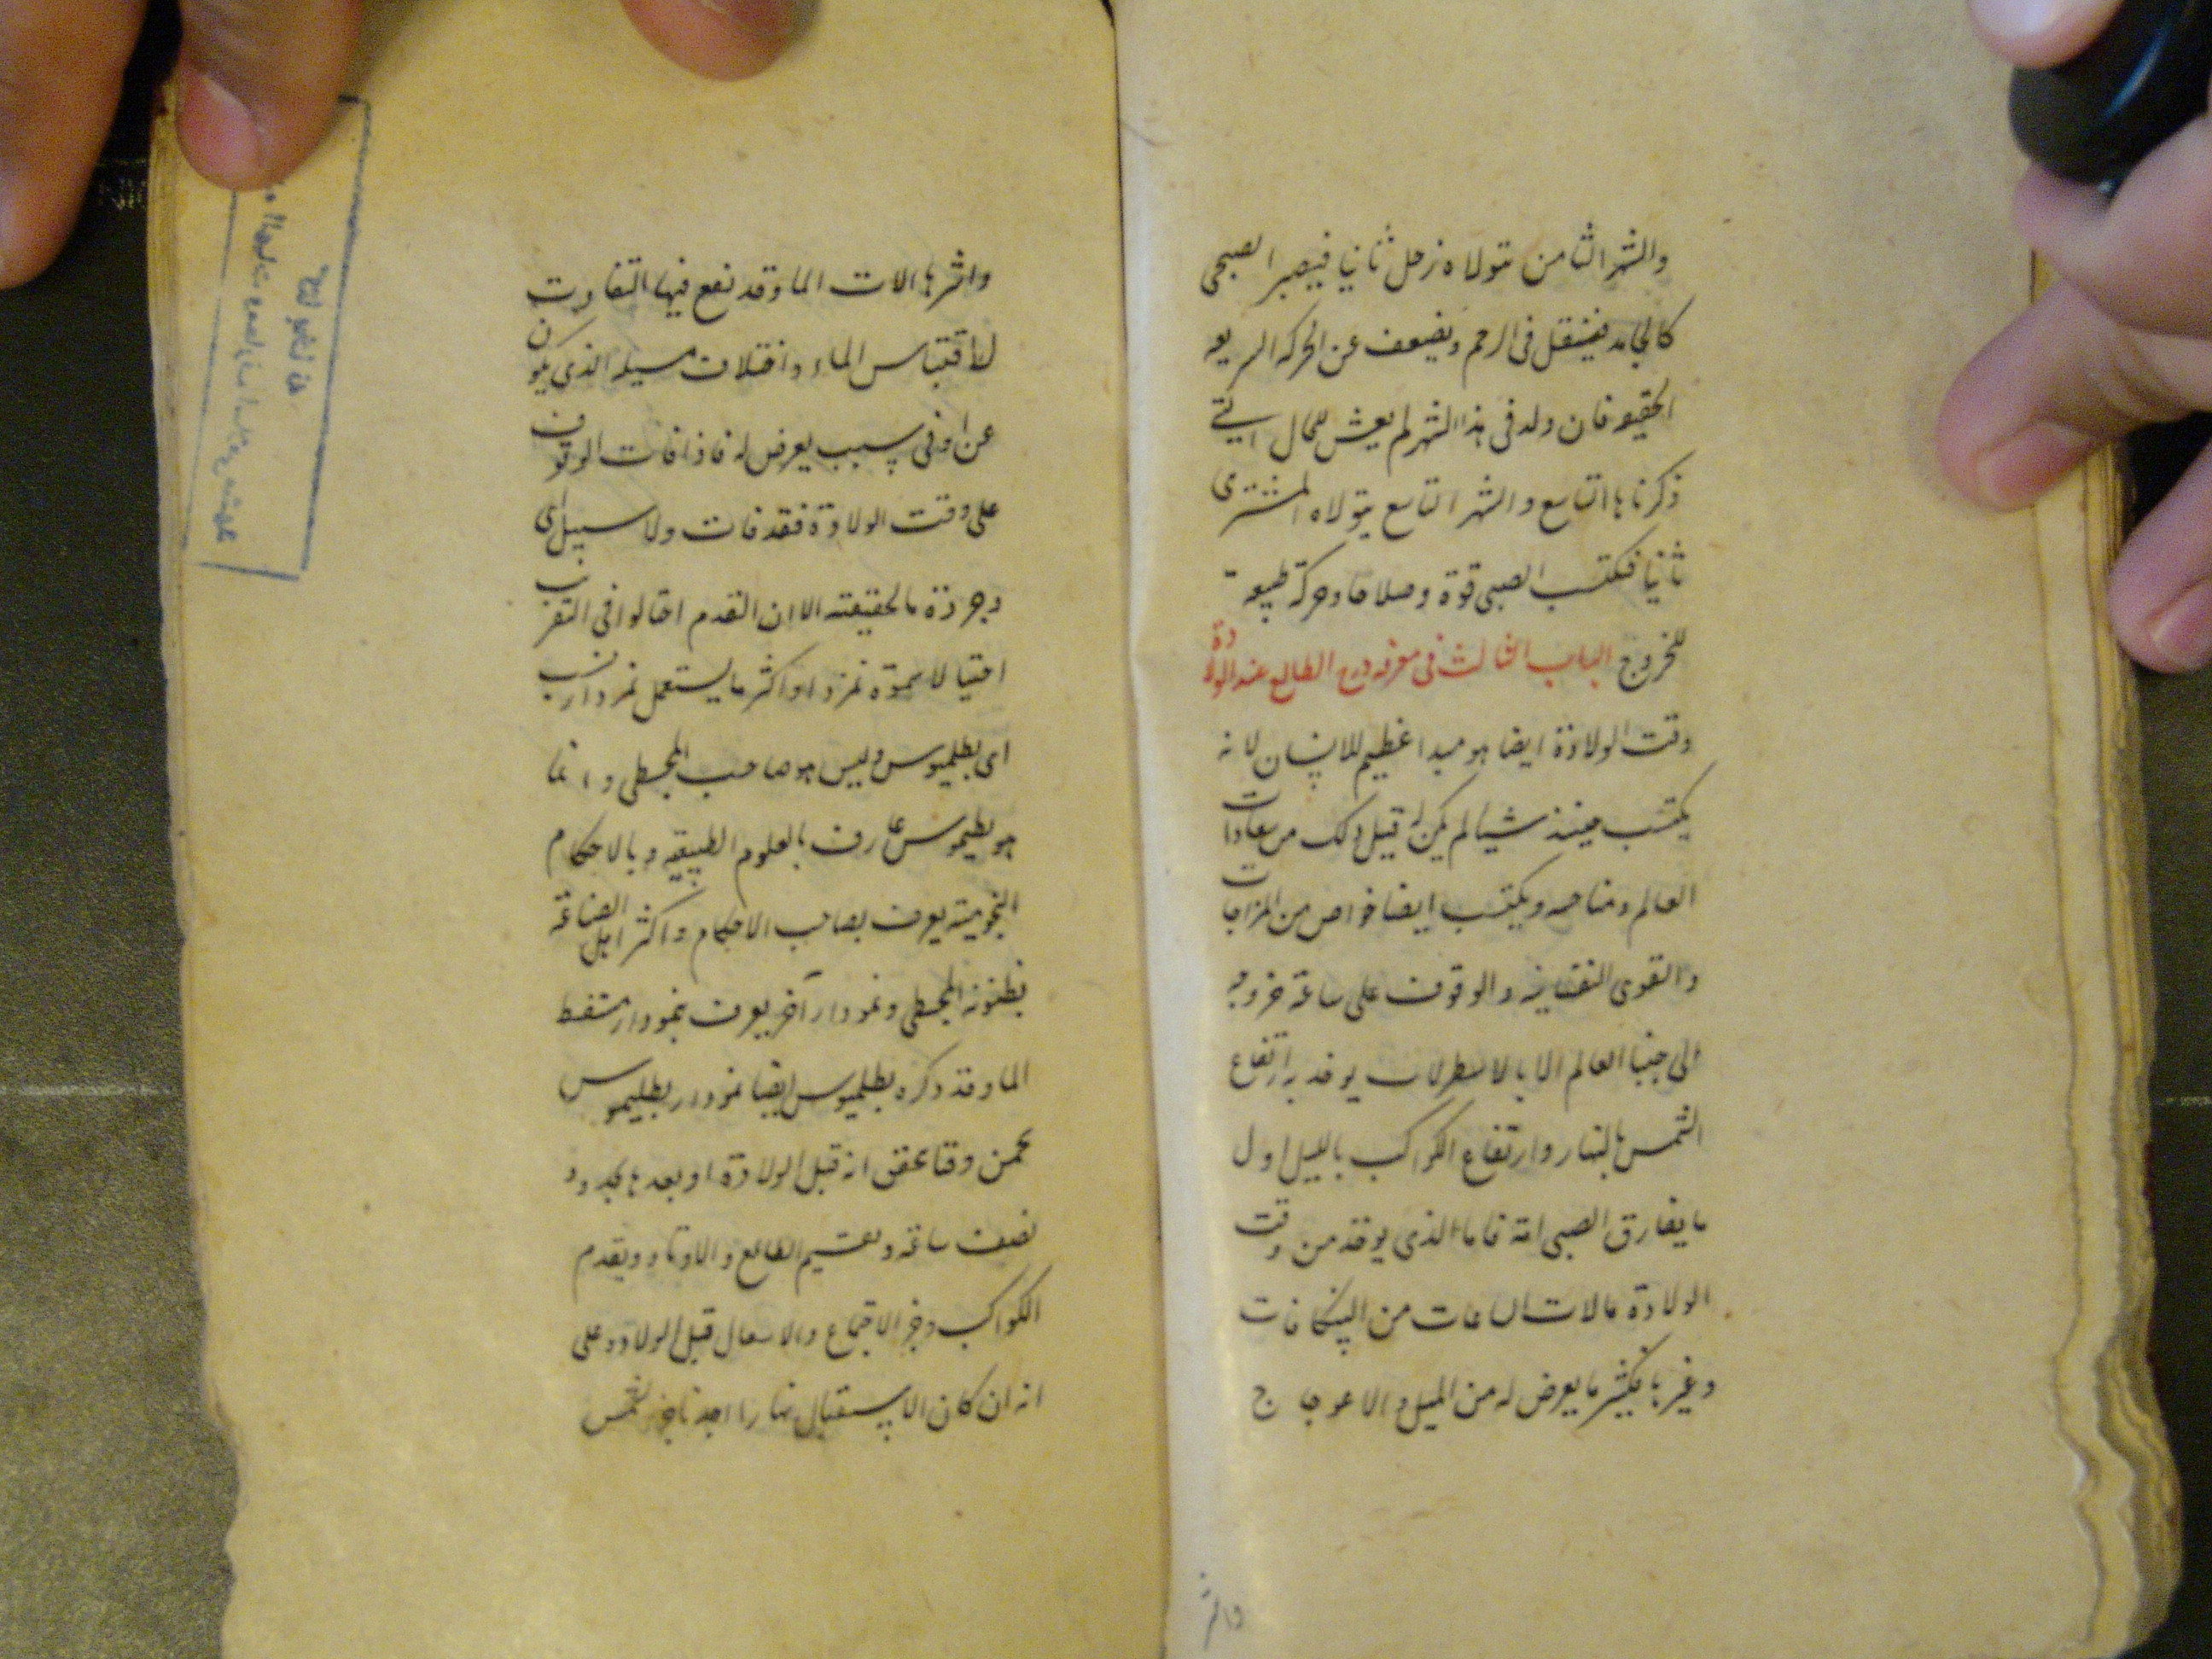 والشهر الثامن تتولاه زحل ثانيا فيصير الصبى
كالجامد فيثقل فى الرحم ويضعف عن الحركه السريعه
الحقيقه فان ولد فى هذا الشهر لم يعش للحال التى
ذكرناها التاسع والشهر التاسع يتولاه المشترى
ثانيا فيكتسب الصبى قوة وصلاحا وحركة طبيعية
للخروج الباب الثالث فى معرفه درج الطالع عند الولادة
وقت الولادة ايضا هو مبدا عظيم للانسان لانه
يكتسب حينئذ شيئا لم يكن له قبل ذلك من سعادات
العالم ومناحسه ويكتسب ايضا خواص من المزاجات
والقوى النفسانيه والوقوف على ساعة خروجه
الى العالم الا بالاسطرلاب يوخذ به ارتفاع
الشمس بالنهار وارتفاع الكواكب بالليل اول
ما يفارق الصبى امه فاما الذى يوخذ من وقت
الولادة بالات الساعات من البنكامات
وغيرها فكثير ما يعرض له من الميل والاعوجاج
واشرها الات الما وقد تقع فيها التفاوت
لاقتباس الماء واختلاف مسيله الذى يكون
عن ادنى سبب يعرض له فاذا فات الوقوف
على وقت الولادة فقد فات ولا سبيل الى
بالحقيقته الا ان القدم احتالوا فى التقريب
احتيالا سموه نمودار واكثر ما يستعمل نمودار ينسب
الى بطلميوس وليس هو صاحب المجسطى وانما
هو بطلميوس عارف بالعلوم الطبيعيه وبالاحكام
النجوميته يعرف بصاحب الاحكام واكثر اهل الصناعة
يظنونه المجسطى ونمودار آخر يعرف بنمودار مسقط
الما وقد ذكره بطلميوس ايضا نمودار بطليموس
يخمن وقتا يحقق انه قبل الولادة او بعدها بحدود
نصف ساعه ويقيم الطالع والاوتاد ويقوم
الكواكب وجزء الاجتماع والاستقبال قبل الولاده على
انه ان كان الاستقبال نهارا اخذنا جزء الشمس